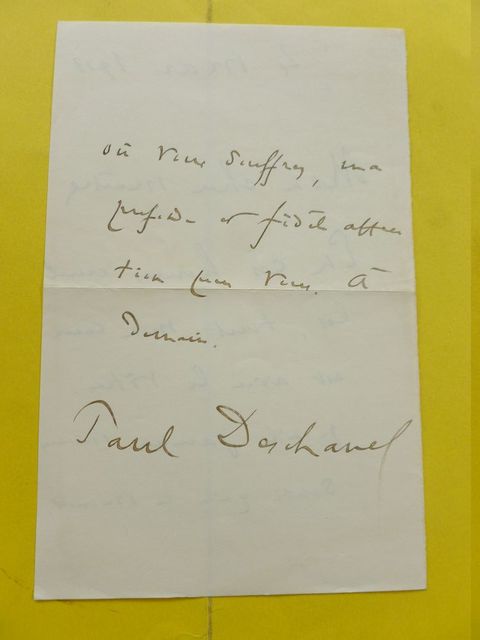 où vous souffrez, ma
profonde et fidèle affec
tion pour vous. À
Demain.
Paul Deschanel